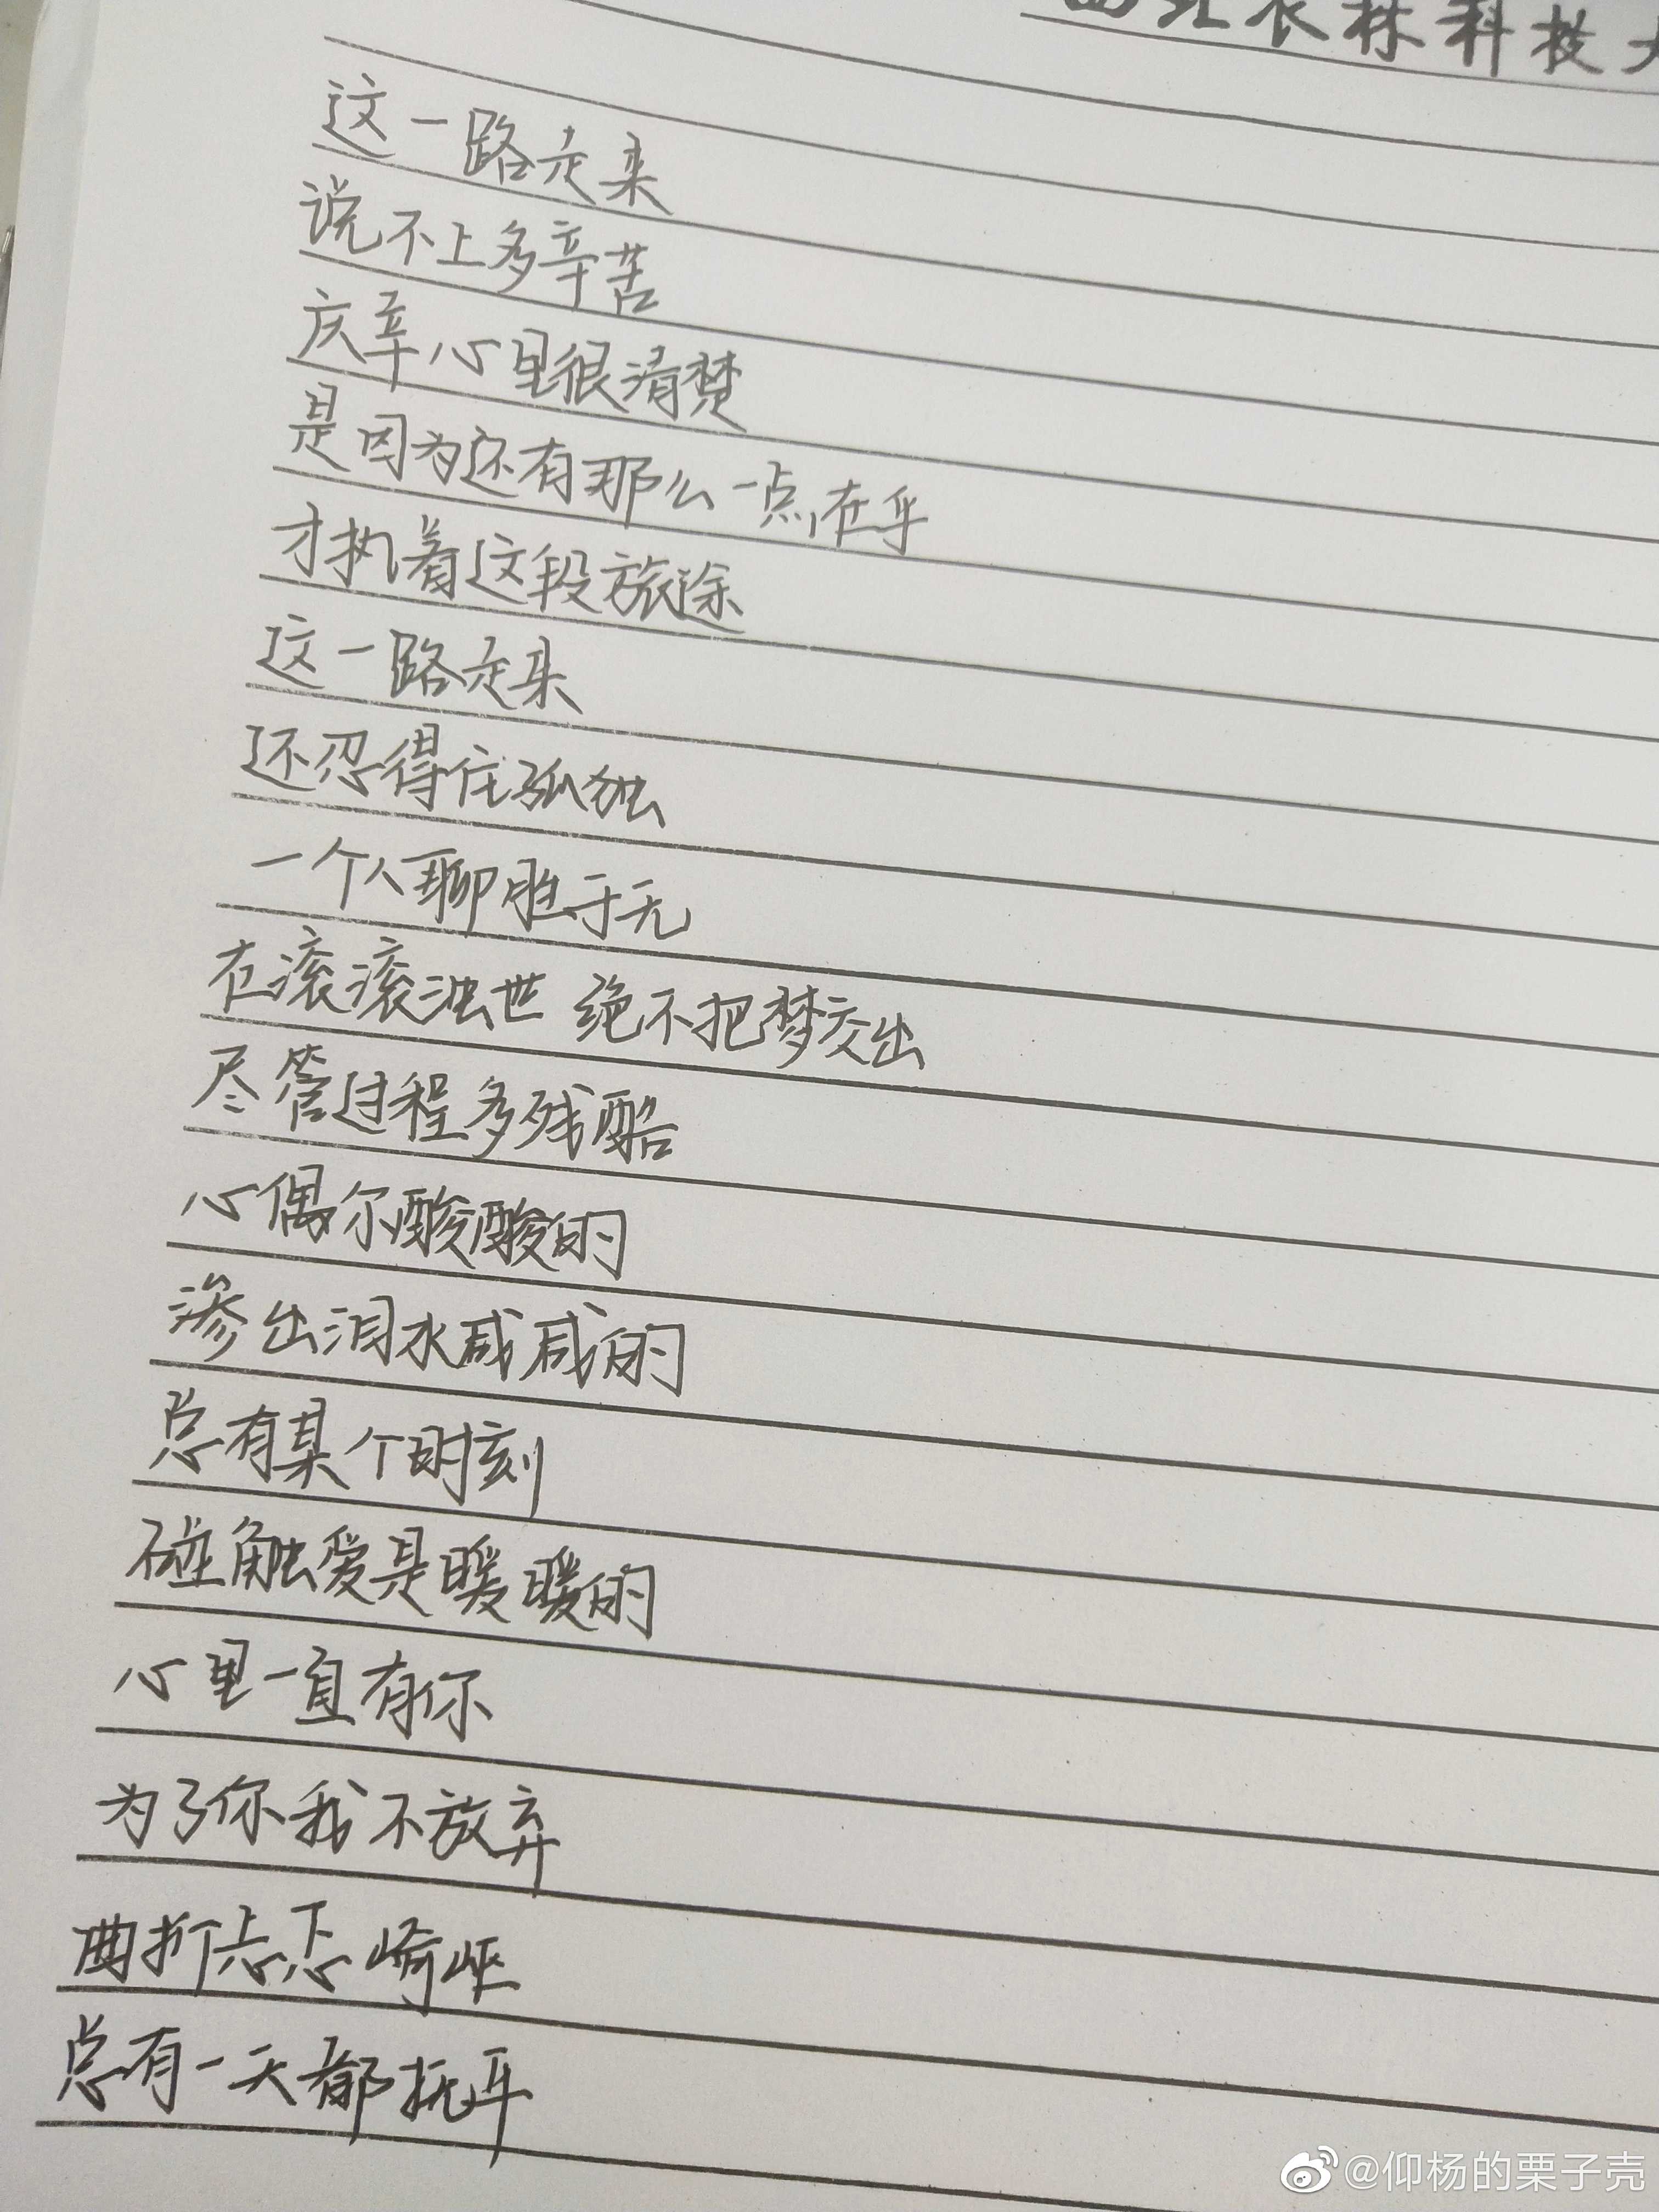 西北农林科技大
这一路走来
说不上多辛苦
庆幸心里很清楚
是因为还有那么一点在乎
才执着这段旅途
这一路走来
还忍得住孤独
一个人聊胜于无
在滚滚浊世 绝不把梦交出
尽管过程多残酷
心偶尔酸酸的
渗出泪水咸咸的
总有某个时刻
碰触爱是暖暖的
心里一直有你
为了你我不放弃
曲折忐忑崎岖
总有一天都抚平
@仰杨的栗子壳